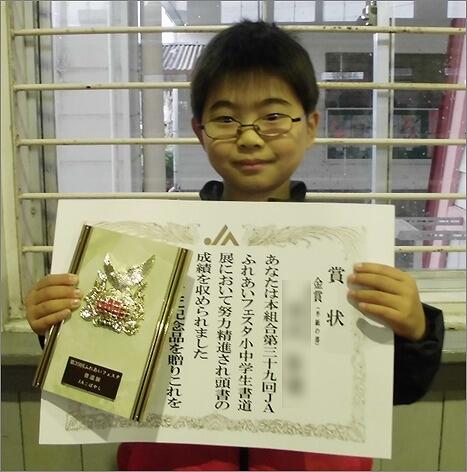 賞状
金賞
あなたは本組合第三十九回JA
ふれあいフェスタ小中学生書道
展において努力精進され頭書の
成績を収められました
記念品を贈りこれを
第39回ふれあいフェスタ
書道展
JAこばやし